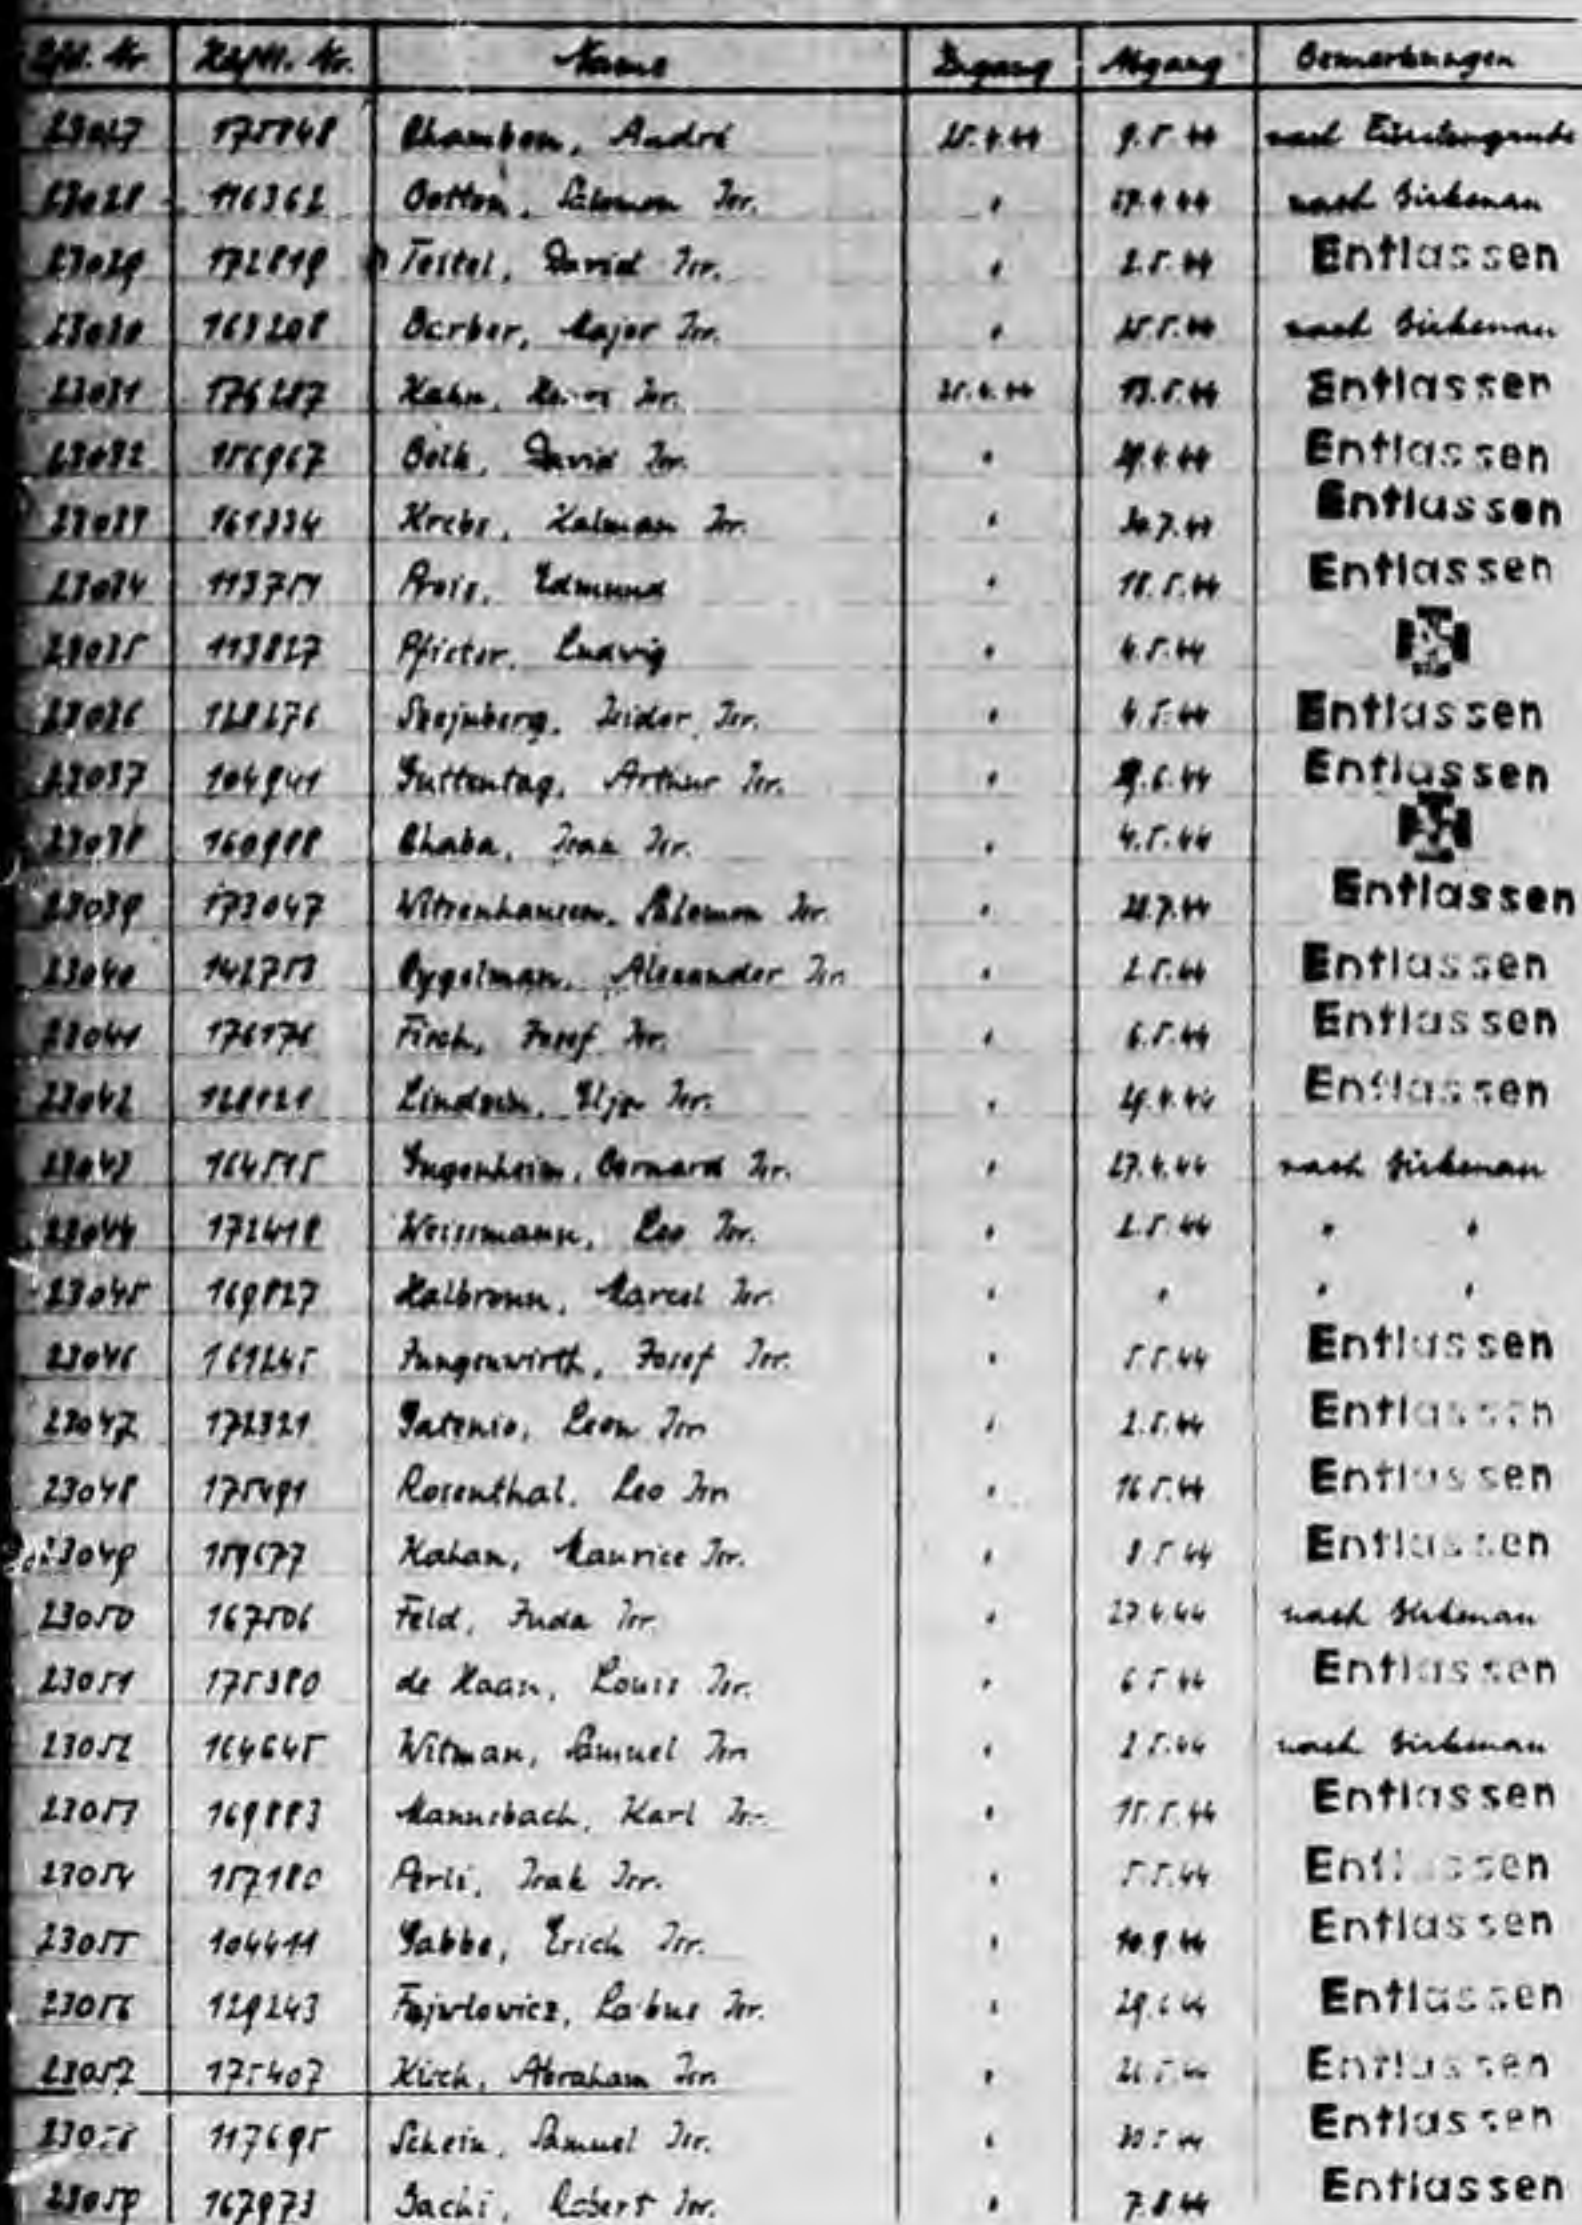 Lfd. Nr. Häftl. Nr. Name Zugang Abgang Bemerkungen
23027 175848 Chambon, André 25.4.44 9.5.44 nach Fürstengrube
23028 116362 Botton, Salomon Isr. " 27.4.44 nach Birkenau
23029 172819 Teitel, David Isr. " 2.5.44 Entlassen
23030 163208 Barber, Major Isr. " 25.5.44 nach Birkenau
23031 176207 Kahn, Isr. 25.4.44 13.5.44 Entlassen
23032 156967 Bolk, David Isr. " 29.4.44 Entlassen
23033 161334 Krebs, Kalman Isr. " 30.7.44 Entlassen
23034 113751 Edmund " 18.5.44 Entlassen
23035 113827 Pfister, Ludwig " 4.5.44
23036 128276 Isidor Isr. " 4.5.44 Entlassen
23037 104941 Guttentag, Arthur Isr. " 29.6.44 Entlassen
23038 160988 Chaba, Isak Isr. " 4.5.44
23039 173047 Witzenhausen, Salomon Isr. " 28.7.44 Entlassen
23040 142753 Cygelman, Alexander Isr. " 2.5.44 Entlassen
23041 176176 Fisch, Josef Isr. " 6.5.44 Entlassen
23042 128121 Elja Isr. " 29.4.44 Entlassen
23043 164515 Gugenheim, Bernard Isr. " 27.4.44 nach Birkenau
23044 172418 Weissmann, Leo Isr. " 2.5.44 " "
23045 169827 Halbronn, Marcel Isr. " " " "
23046 161245 Jungenwirth, Josef Isr. " 5.5.44 Entlassen
23047 172321 Gatenio, Leon Isr. " 2.5.44 Entlassen
23048 175491 Rosenthal, Leo Isr. " 16.5.44 Entlassen
23049 159677 Kahan, Maurice Isr. " 8.5.44 Entlassen
23050 167506 Feld, Juda Isr. " 27.4.44 nach Birkenau
23051 175380 de Haan, Louis Isr. " 6.5.44 Entlassen
23052 164645 Witman, Samuel Isr. " 2.5.44 nach Birkenau
23053 169883 Mannsbach, Karl Isr. " 15.5.44 Entlassen
23054 157180 Perls, Isak Isr. " 5.5.44 Entlassen
23055 104411 Gabbe, Erich Isr. " 10.9.44 Entlassen
23056 129243 Fajwlowicz, Isr. " 29.6.44 Entlassen
23057 175407 Kisch, Abraham Isr. " Entlassen
23058 117695 Schein, Samuel Isr. " 30.5.44 Entlassen
23059 167973 Robert Isr. " 7.8.44 Entlassen